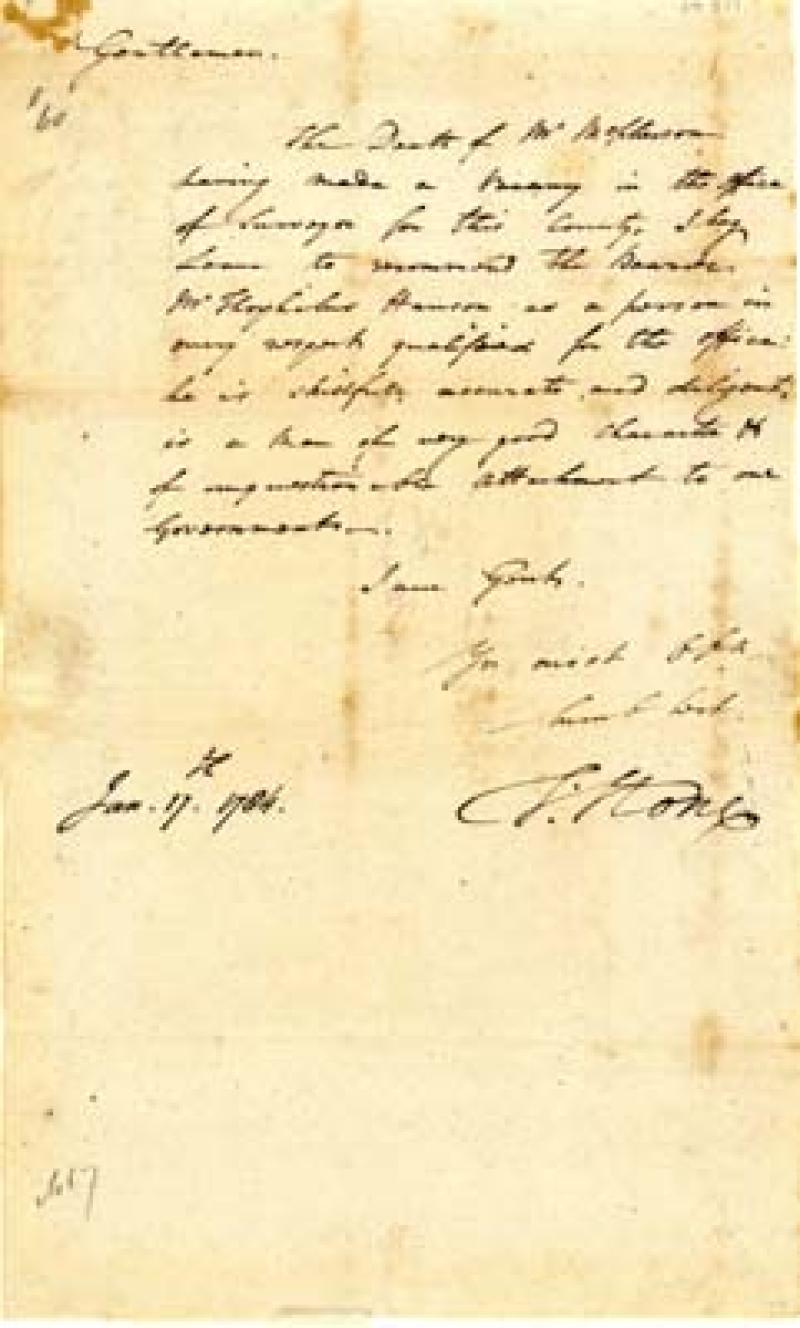 Gentlemen.
The Death of Mr McPherson
having made a Vacancy in the office
of Surveyor for this County, I beg
Leave to recommend the Bearer
Mr Theophilus Hanson as a person in
every respect qualified for the office.
he is skillful, accurate and diligent,
is a Man of a very good Character &
of unquestionable Attachment to our
Government.
I am Gents.
Yr most Obt
humb Sert.
Jan. 17th 1784.
T. Stone